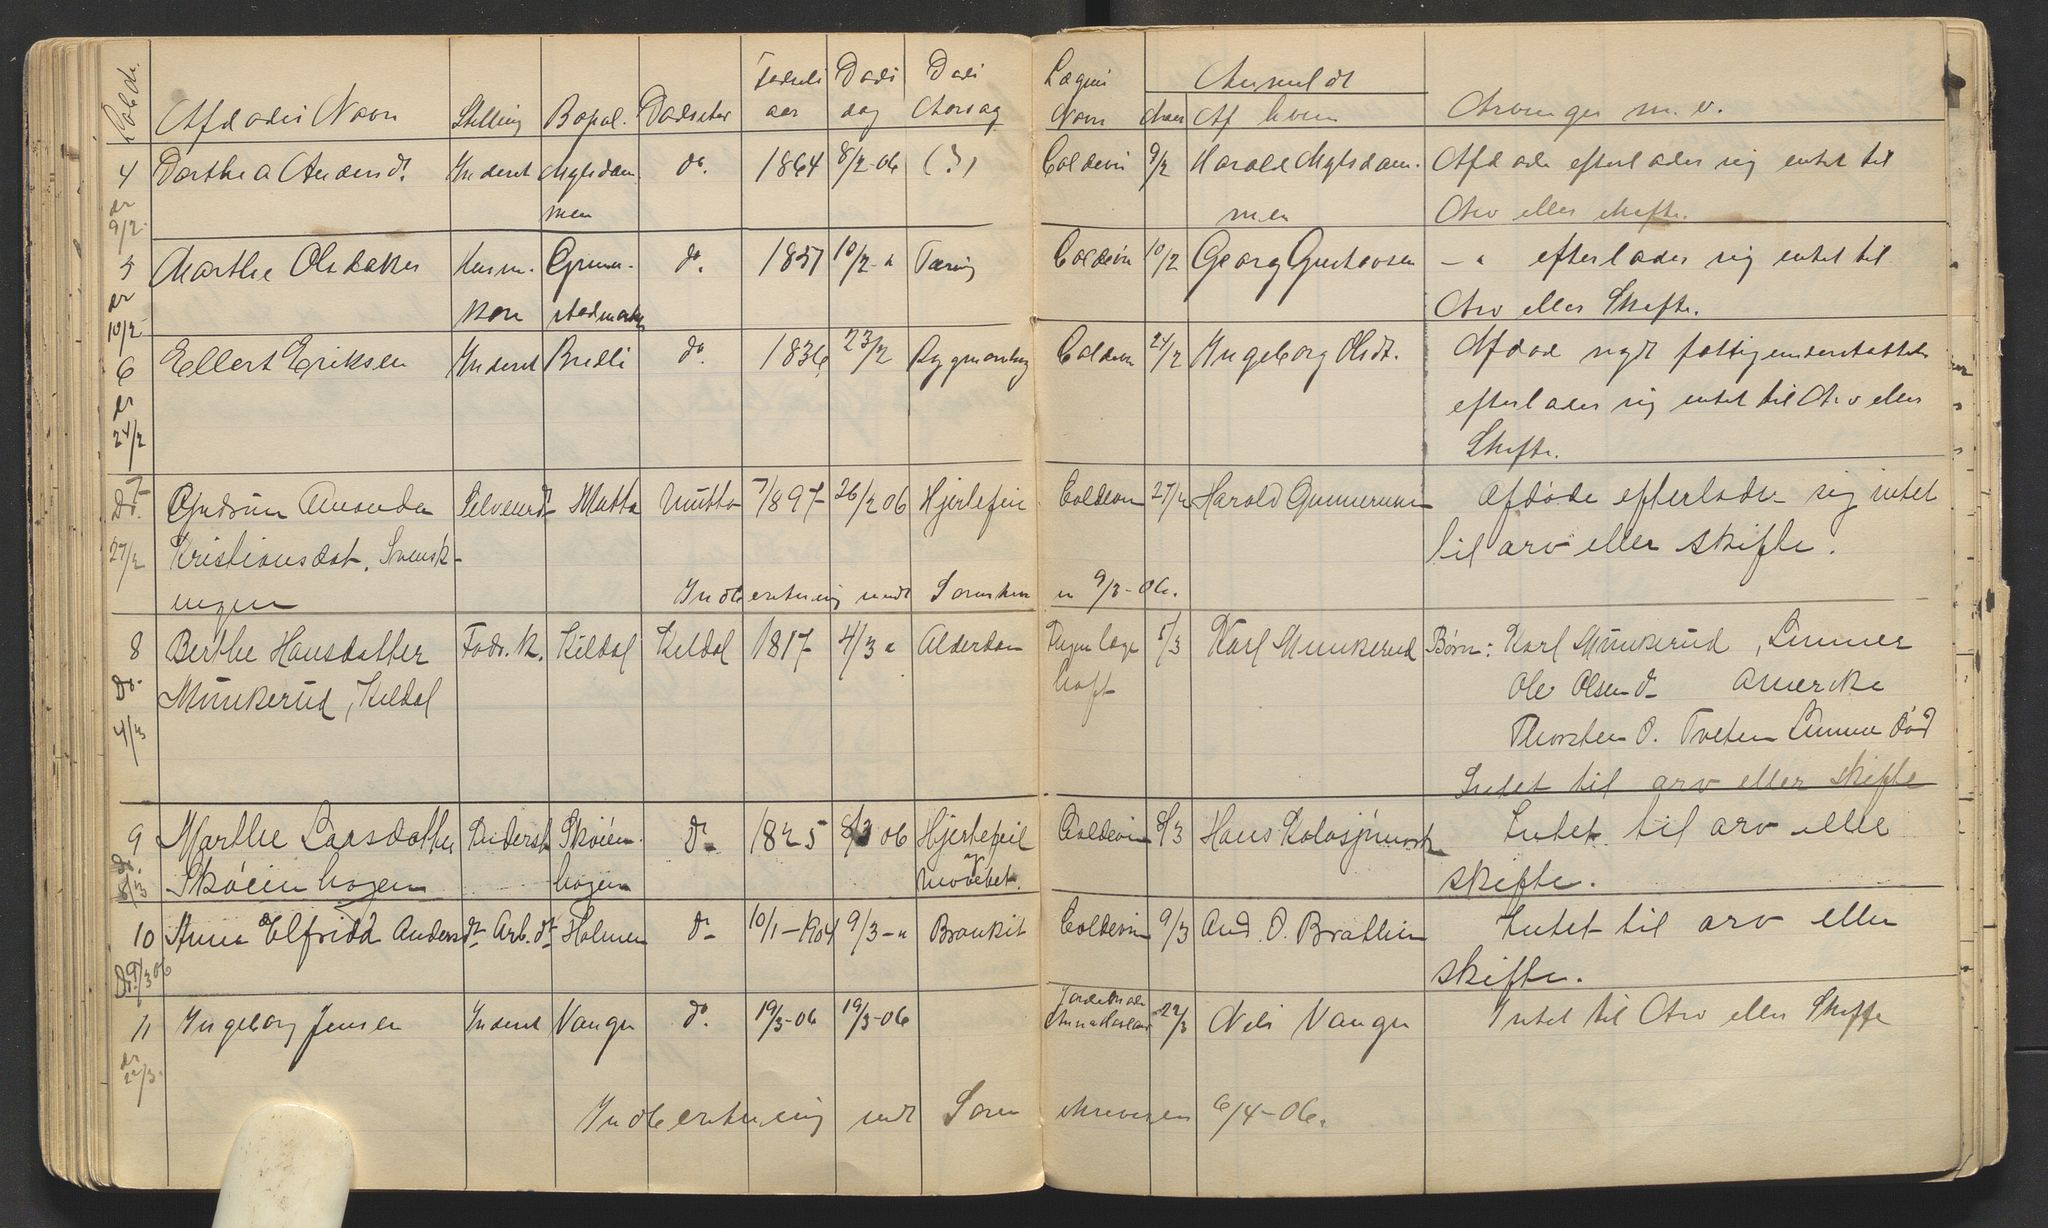 Afdødes Navn Stilling Bopæl. Dødssted Fødsels Døds Døds Lægens Anmeldt Arvinger m. v.
aar dag Aarsag Navn Af hvem
4 Dorthea Andersd. Inderst do. 1864 8/2-06 (?) Coldevin 9/2 Afdøde efterlader sig intet til
9/2 men men Arv eller skifte.
5 Marthe Olsd Grim- do. 10/2 " Tæring Coldevin 10/2 Georg Gustavsen - " efterlader sig intet til
10/2 kone Arv eller Skifte.
6 Ellert Eriksen Inderst do. 1836 23/2 Coldevin 24/2 Ingeborg Olsdt. Afdøde nydt fattigunderstøttelse
efterlader sig intet til Arv eller
24/2 Skifte.
7 Gudrun Amanda Mutta Mutta 1897 26/2 06 Hjertefeil Coldevin 27/2 Harold Gunnerusen Afdøde efterlader sig intet
27/2 Kristiansdat. Svensk- til arv eller skifte.
engen Indberetning sendt Sorenskr 9/3-06.
8 Berthe Hansdatter Føds.k. Kildal Kildal 1817 4/3 " Alderdom Ingen læge 5/3 Karl Munkerud Børn: Karl Munkerud, Lunner
Do. Munkerud, Kildal haft Ole Olsen d- Amerika
4/3 Thorsten O. Tveten Lunner død
Intet til arv eller skifte
9 Marthe Larsdatter Inderst Skøien- do 1825 8/3 06 Hjertefeil Coldevin 8/3 Hans Intet til arv eller
8/3 Skøienhagen hagen skifte.
10 Anna Elfrida Andersdt. Arb. dt. Holmen do 10/1-1904 9/3-" Bronkit Coldevin 9/3 And. O. Bratlien Intet til arv eller
Do. 9/3 06 skifte.
11 Ingeborg Jensen Inderst Vangen do. 19/3-06 19/3-06 Jordemoder 22/3 Nils Vangen Intet til Arv eller Skifte
22/3
Indberetning sendt Sorenskriveren 6/4-06.